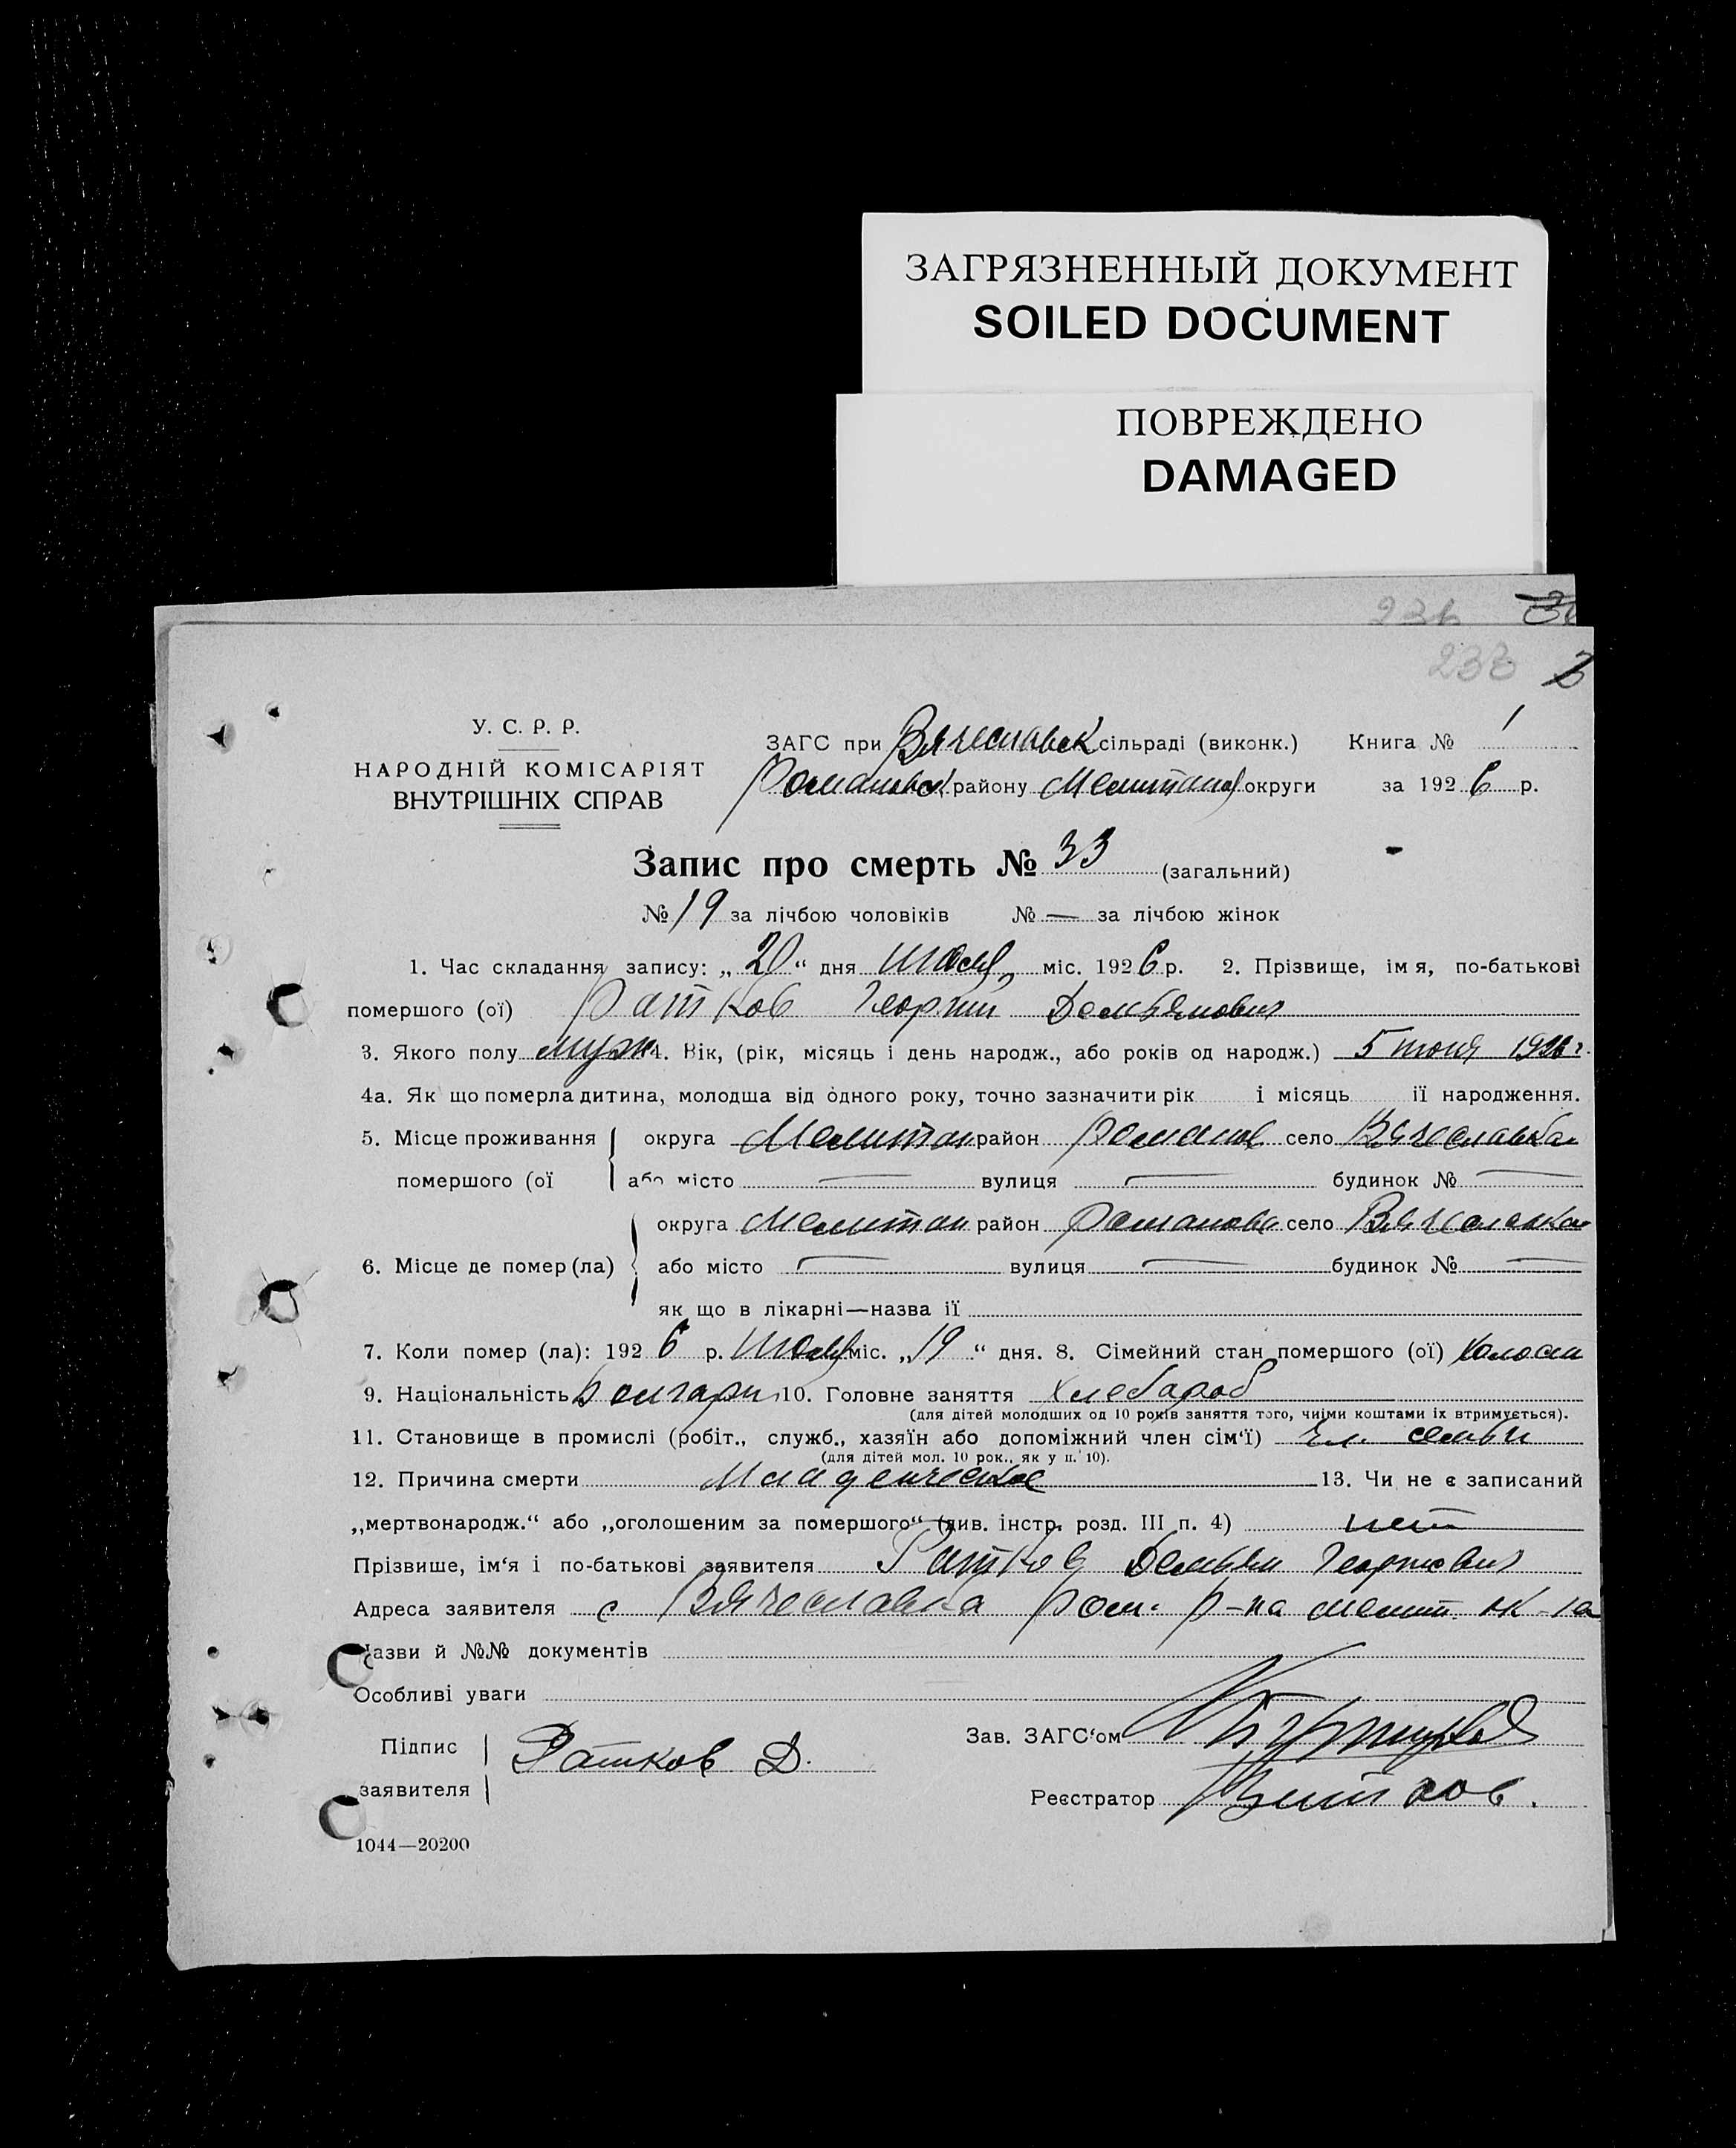 ЗАГРЯЗНЕННЫЙ ДОКУМЕНТ
SOILED DOCUMENT
ПОВРЕЖДЕНО
DAMAGED
236
У. С. Р. Р.
НАРОДНІЙ КОМІСАРІЯТ
ВНУТРІШНІХ СПРАВ
ЗАГС при Вячеславск сільраді (виконк.) Книга № 1
Романовск району Мелитоп округи за 1926 р.
Запис про смерть № 33 (загальний)
№ 19 за лічбою чоловіків № — за лічбою жінок
1. Час складання запису: „20“ дня июля міс. 1926 р. 2. Прізвище, ім я, по-батькові
помершого (ої) Ратков Георгий Демьянович
3. Якого полу муж 4. Вік, (рік, місяць і день народж., або років од народж.) 5 июня 1926 г.
4а. Як що померла дитина, молодша від одного року, точно зазначити рік і місяць її народження.
5. Місце проживання округа Мелитоп район Романов село Вячеславка
помершого (ої або місто — вулиця — будинок № —
округа Мелитоп район Романовс село Вячеславка
6. Місце де помер (ла) або місто — вулиця — будинок № —
як що в лікарні—назва її
7. Коли помер (ла): 1926 р. июля міс. „19“ дня. 8. Сімейний стан помершого (ої) холост
9. Національність Болгарин 10. Головне заняття хлебороб
(для дітей молодших од 10 років заняття того, чиїми коштами їх втримується).
11. Становище в промислі (робіт., служб., хазяїн або допоміжний член сім‘ї) чл. семьи
(для дітей мол. 10 рок., як у п. 10).
12. Причина смерти Младенческое 13. Чи не є записаний
„мертвонародж.“ або „оголошеним за помершого“ (див. інстр. розд. III п. 4) нет
Прізвище, ім‘я і по-батькові заявителя Ратков Демьян Георгиевич
Адреса заявителя с Вячеславка Ром. р-на мелит. ок-га
Назви й №№ документів
Особливі уваги
Підпис Ратков Д. Зав. ЗАГС‘ом
заявителя Реєстратор
1044—20200